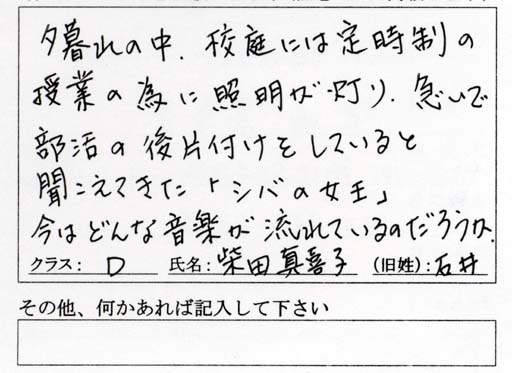 夕暮れの中、校庭には定時制の
授業の為に照明が灯り、急いで
部活の後片付けをしていると
聞こえてきた「シバの女王」
今はどんな音楽が流れているのだろうか。
クラス： D 氏名： 柴田真喜子 （旧姓）：石井
その他、何かあれば記入して下さい